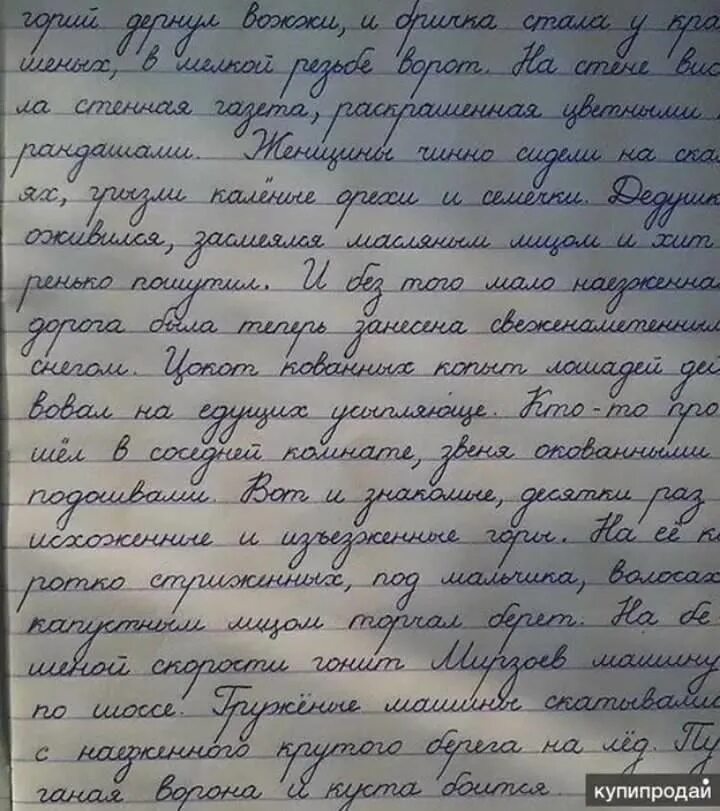 горий дернул вожжи, и бричка стала у кра
шеных, в мелкой резьбе ворот. На стене вис
ла стенная газета, раскрашенная цветными
рандашами. Женщины чинно сидели на ска
ях, грызли калёные орехи и семечки. Дедушк
оживился, засмеялся масляным лицом и хит
ренько пошутил. И без того мало наезженна
дорога была теперь занесена свеженаметенным
снегом. Цокот кованных копыт лошадей дей
вовал на едущих усыпляюще. Кто-то про
шёл в соседней комнате, звеня окованными
подошвами. Вот и знакомые, десятки раз
исхоженные и изъезженные горы. На её к
ротко стриженных, под мальчика, волосах
капустным лицом торчал берет. На бе
шеной скорости гонит Мирзоев машину
по шоссе. Гружёные машины скатывали
с наезженного крутого берега на лёд. Пу
ганая ворона и куста боится
купипродай